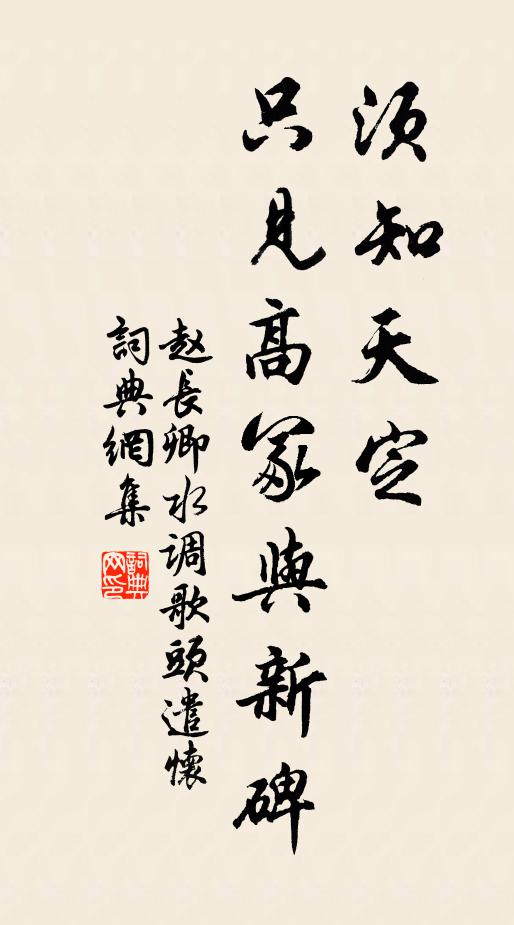 须知天定
只見高冢與新碑
赵長卿水调歌頭遣懷
詞典網集
詞典网印